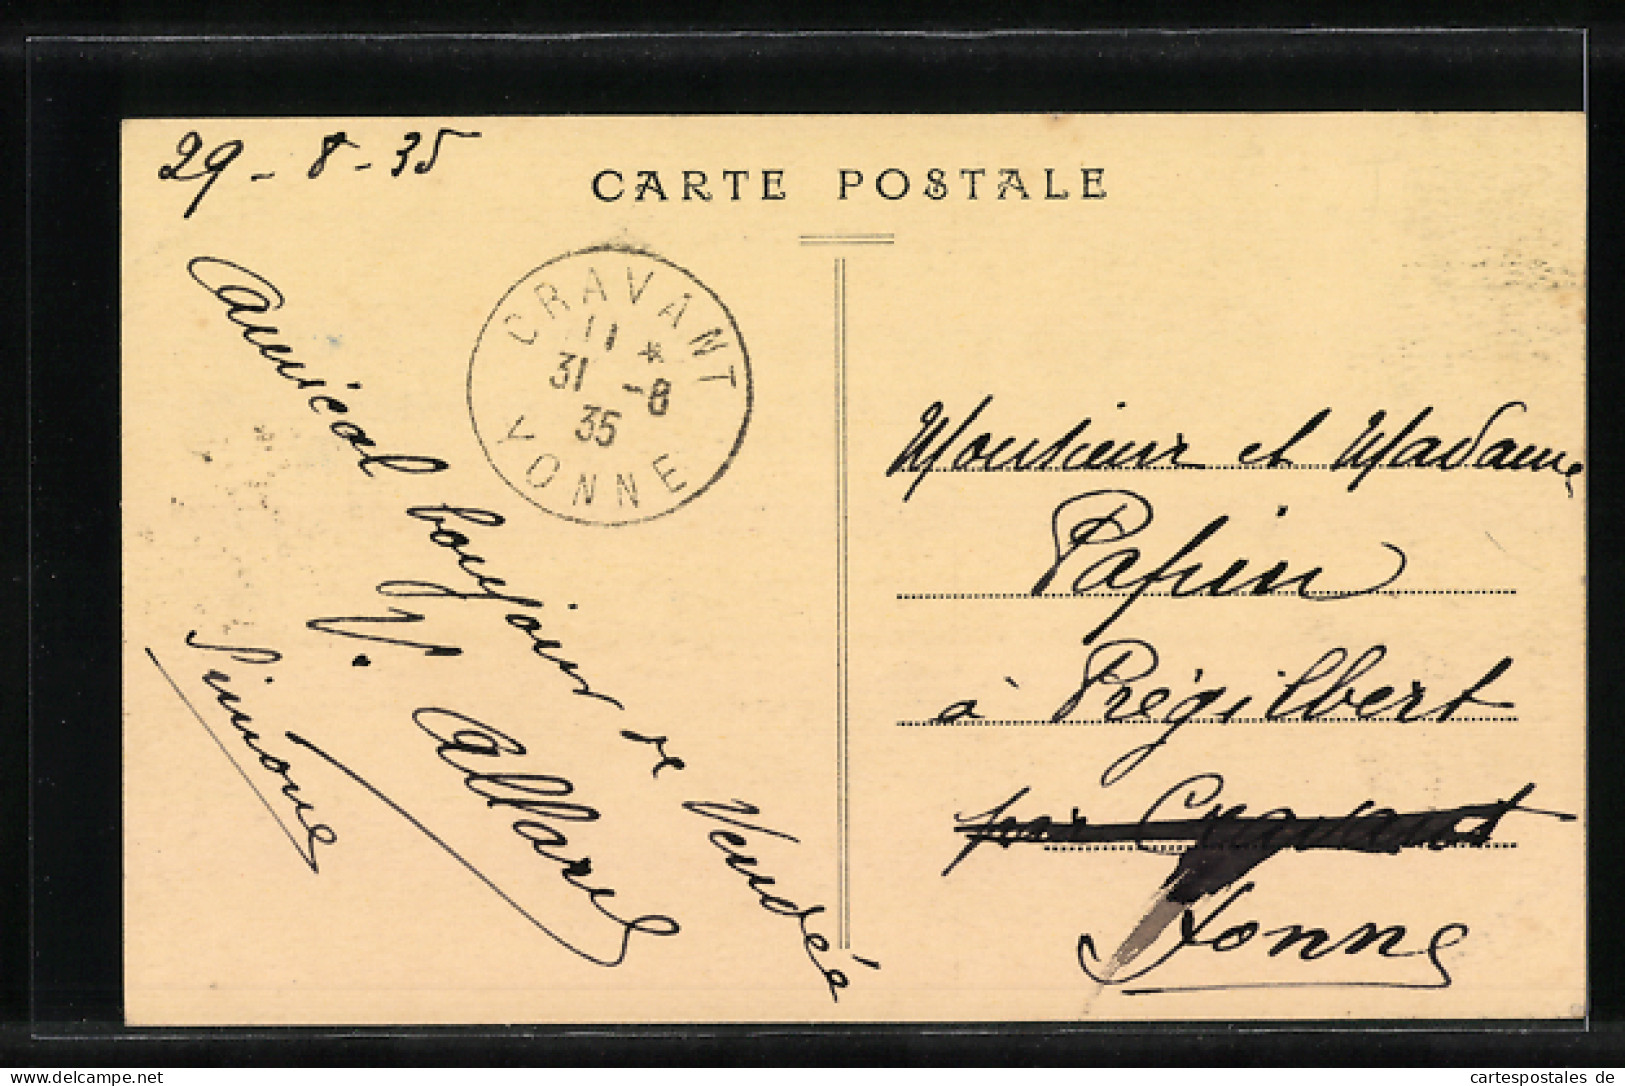 29-8-35
CARTE POSTALE
CRAVANT
11 *
31 -8
35
YONNE
Amical bonjour de Vendée
V. Allard
Simone
Monsieur et Madame
Papin
à Prégilbert
par Cravant
Yonne
Delcampe.net
cartespostales de